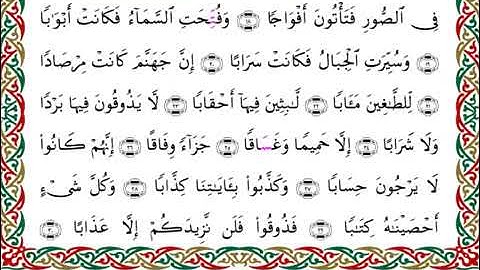 فِي ٱلصُّورِ فَتَأْتُونَ أَفْوَاجًا ۝١٨ وَفُتِحَتِ ٱلسَّمَآءُ فَكَانَتْ أَبْوَٰبًا
۝١٩ وَسُيِّرَتِ ٱلْجِبَالُ فَكَانَتْ سَرَابًا ۝٢٠ إِنَّ جَهَنَّمَ كَانَتْ مِرْصَادًا
۝٢١ لِّلطَّٰغِينَ مَـَٔابًا ۝٢٢ لَّٰبِثِينَ فِيهَآ أَحْقَابًا ۝٢٣ لَّا يَذُوقُونَ فِيهَا بَرْدًا
وَلَا شَرَابًا ۝٢٤ إِلَّا حَمِيمًا وَغَسَّاقًا ۝٢٥ جَزَآءً وِفَاقًا ۝٢٦ إِنَّهُمْ كَانُوا۟
لَا يَرْجُونَ حِسَابًا ۝٢٧ وَكَذَّبُوا۟ بِـَٔايَٰتِنَا كِذَّابًا ۝٢٨ وَكُلَّ شَىْءٍ
أَحْصَيْنَٰهُ كِتَٰبًا ۝٢٩ فَذُوقُوا۟ فَلَن نَّزِيدَكُمْ إِلَّا عَذَابًا ۝٣٠